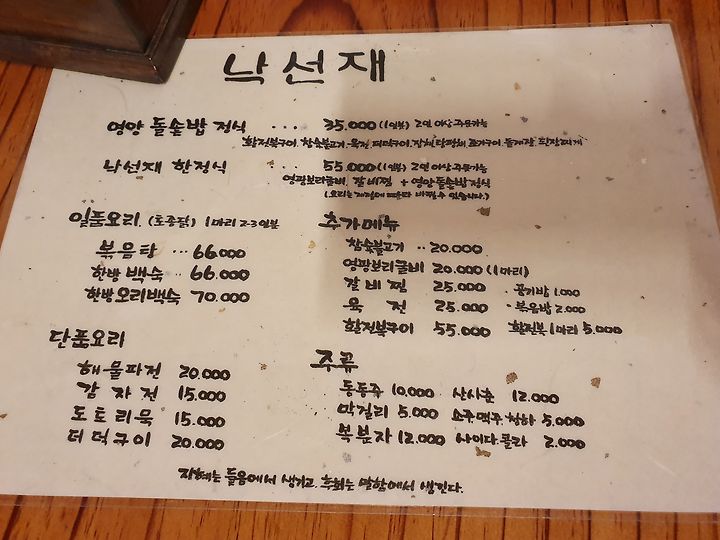 낙선재
영양 돌솥밥 정식 ... 35.000 (1인분) 2인 이상 주문가능
활전복구이, 참숯불고기, 육전, 더덕구이, 잡채, 탕평채, 조기구이, 들깨탕, 된장찌개
낙선재 한정식 ... 55.000 (1인분) 2인 이상 주문가능
영광보리굴비, 갈비찜 + 영양돌솥밥 정식
(요리는 계절에 따라 바뀔 수 있습니다.)
일품요리. (토종닭) 1마리 2-3인분
볶음탕 ... 66.000
한방 백숙 .. 66.000
한방오리백숙 70.000
추가메뉴
참숯불고기 .. 20.000
영광보리굴비 20.000 (1마리)
갈비찜 25.000 · 공기밥 1.000
육전 25.000 · 볶음밥 2.000
활전복구이 55.000 활전복 1마리 5.000
단품요리
해물파전 20.000
감자전 15.000
도토리묵 15.000
더덕구이 20.000
주류
동동주 10.000 산사춘 12.000
막걸리 5.000 소주.맥주.청하 5.000
복분자 12.000 사이다.콜라 2.000
지혜는 들음에서 생기고, 후회는 말함에서 생긴다.